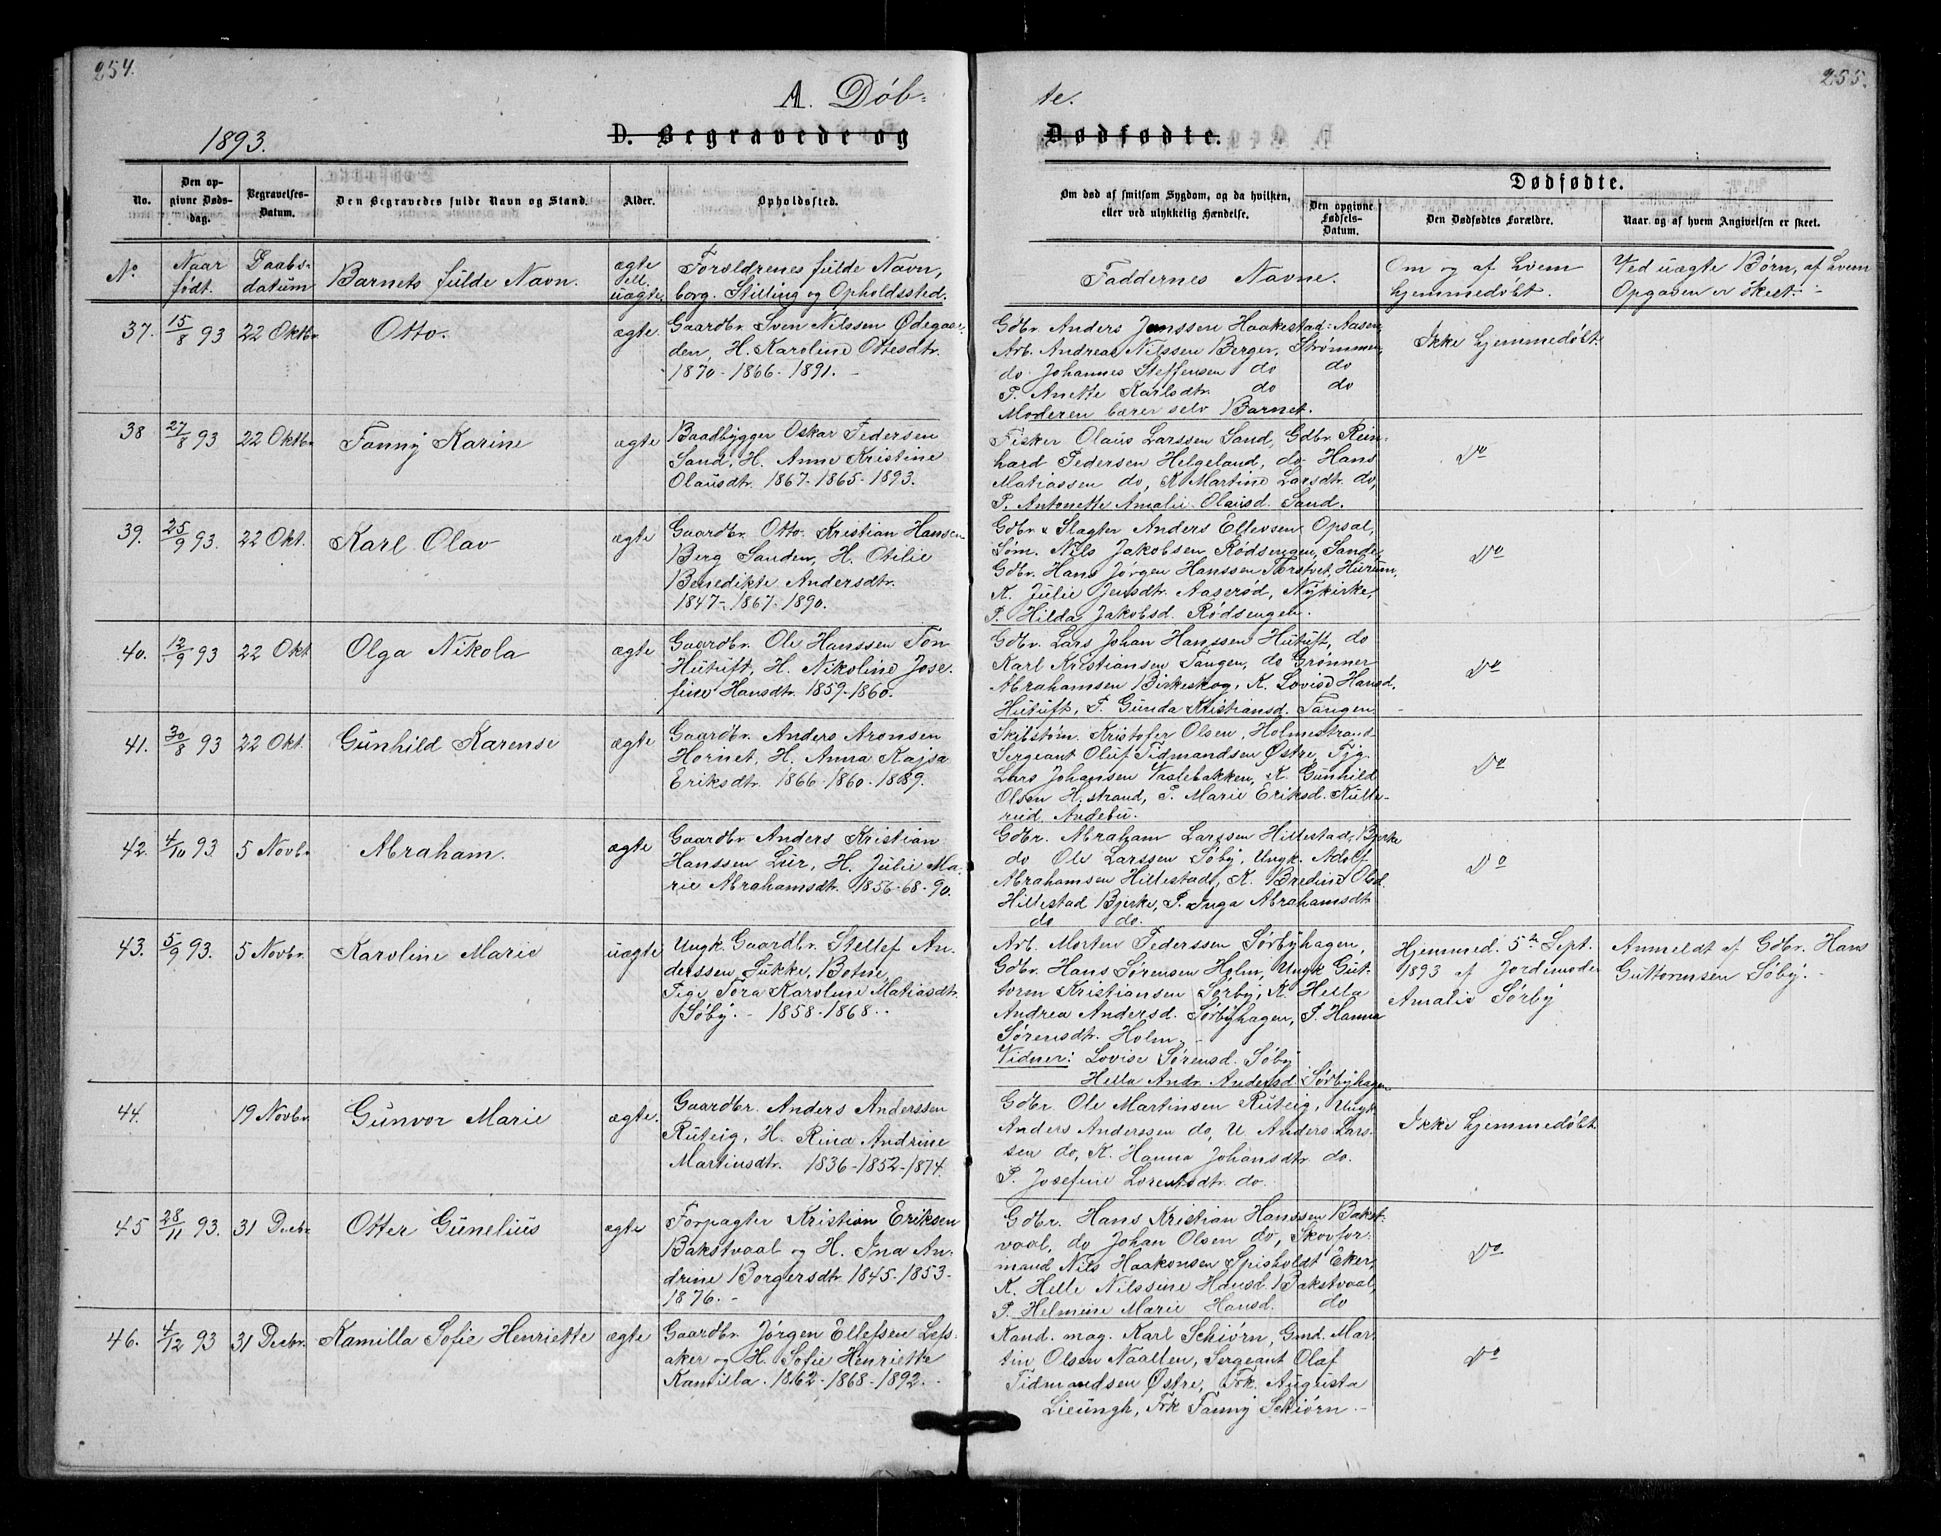 254.
255.
A. Döb-
te.
1893.
D. Begravede og
Dødfødte.
No.
Den op-
givne Døds-
dag.
Begravelses-
Datum.
Den Begravedes fulde Navn og Stand.
Alder.
Opholdssted.
Om død af smitsom Sygdom, og da hvilken,
eller ved ulykkelig Hændelse.
Dødfødte.
Den opgivne
Fødsels-
Datum.
Den Dødfødtes Forældre.
Naar og af hvem Angivelsen er skeet.
No
Naar
född.
Daabs-
datum
Barnets fulde Navn.
ægte
ell.
uægte
Forældrenes fulde Navn,
borg. Stilling og Opholdssted.
Faddernes Navne.
Om og af hvem
hjemmedöbt.
Ved uægte Börn, af hvem
Opgaven er skeet.
37.
15/8 93
22 Oktbr
Otto.
ægte
Gaardbr. Sven Nilssen Ödegaar-
den, H. Karoline Ottesdtr.
1870 - 1866 - 1891. -
Gdbr. Anders Jonssen Haakestad-Aasen,
Arb. Andreas Nilssen Berger, Strömmen,
do Johannes Steffensen do do
P. Anette Karlsdtr. do do
Moderen bærer selv Barnet.
Ikke hjemmedöbt.
38
27/8 93
22 Oktbr
Fanny Karine
ægte
Baadbygger Oskar Pedersen
Sand, H. Anne Kristine
Olausdtr. 1867 - 1865 - 1893.
Fisker Olaus Larssen Sand, Gdbr. Rein-
hard Pedersen Helgeland, do Hans
Matiassen do, K. Martine Larsdtr. do,
P. Antonette Amalie Olausd. Sand.
Do
39.
25/9 93.
22 Okt.
Karl Olav
ægte
Gaardbr. Otto Kristian Hansen
Berg Sanden, H. Otilie
Benedikte Andersdtr.
1847 - 1867 - 1890.
Gdbr. & Slagter Anders Ellevsen Opsal,
Söm. Nils Jakobsen Rödsengen, Sande,
Gdbr. Hans Jörgen Hanssen Torstvet, Hurum,
K. Julie Jensdtr. Aaseröd, Nykirke,
P. Hilda Jakobsd. Rödsengen.
Do
40.
12/9 93
22 Okt
Olga Nikola
ægte
Gaardbr. Ole Hanssen Ton
Hutuft, H. Nikoline Jose-
fine Hansdtr. 1859 - 1860.
Gdbr. Lars Johan Hanssen Hutuft, do
Karl Kristiansen Tangen, do Grönner
Abrahamsen Birkeskog, K. Lovise Hansd.
Hutuft, P. Gunda Kristiansd. Tangen.
Do
41.
30/8 93
22 Okt.
Gunhild Karense
ægte
Gaardbr. Anders Aronsen
Hornet, H. Anna Kajsa
Eriksdtr. 1866 - 1860 - 1889.
Skibstöm. Kristofer Olsen, Holmestrand
Sergeant Oluf Tidmandsen Östre, Tjg.
Lars Johansen Vaalebakken, K. Gunhild
Olsen H.strand, P. Marie Eriksd. Kulle-
rud, Andebu.
Do
42.
4/10 93
5 Novbr
Abraham.
ægte
Gaardbr. Anders Kristian
Hanssen Lur, H. Julie Ma-
rie Abrahamsdt. 1856 - 68 - 90.
Gdbr. Abraham Larssen Hillestad, Bjerke
do Ole Larssen Söby, Ungk. Adolf
Abrahamsen Hillestad, K. Bredine Olsd.
Hillestad Bjerke, P. Inga Abrahamsdt
do do.
Do
43.
5/9 93.
5 Novbr.
Karoline Marie
uægte
Ungk. Gaardbr. Stellef An-
derssen Sukke, Botne,
Pige Tora Karoline Matiasdtr.
Söby. - 1858 - 1868. -
Arb. Morten Pederssen Sörbyhagen,
Gdbr. Hans Sörensen Holm, Ungk Gut-
torm Kristiansen Sörby, K. Hella
Andrea Andersd. Sörbyhagen, P. Hanna
Sörensdtr. Holm. -
Vidner: Lovise Sörensd. Söby
Hella Andr. Andersd Sörbyhagen
Hjemmed. 5te Sept.
1893 af Jordemoder
Amalie Sörby
Anmeldt af Gdbr. Hans
Guttormsen Söby. -
44.
19 Novbr
Gunvor Marie
ægte.
Gaardbr. Anders Anderssen
Ruteig, H. Rina Andrine
Martinsdtr. 1836 - 1852 - 1874.
Gdbr Ole Martinsen Ruteig, Ungk
Anders Anderssen do, U Anders Lars-
sen do, K. Hanna Johansdtr. do.
P. Josefine Lorentsdtr. do.
Ikke hjemmedöbt
45
28/11 93.
31 Decbr
Otter Gunelius
ægte
Forpagter Kristian Eriksen
Bakstvaal og H. Ina An-
drine Borgersdtr. 1845 - 1853 -
1876. -
Gdbr. Hans Kristian Hanssen Bakst-
vaal, do Johan Olsen do, Skovfor-
mand Nils Haakonsen Spisholdt Eker,
K. Helle Nilssine Hansd. Bakstvaal,
P. Helmine Marie Hansd. do
Do
46.
4/12 93
31 Decbr.
Kamilla Sofie Henriette
ægte
Gaardbr. Jörgen Ellefsen Lefs-
aker og H. Sofie Henriette
Kamilla. 1862 - 1868 - 1892. -
Kand. mag. Karl Schiörn, Gmd. Mar-
tin Olsen Naalten, Sergeant Olaf
Tidmandsen Östre, Frk. Augusta
Lieungh, Frk Fanny Schiörn. -
Do